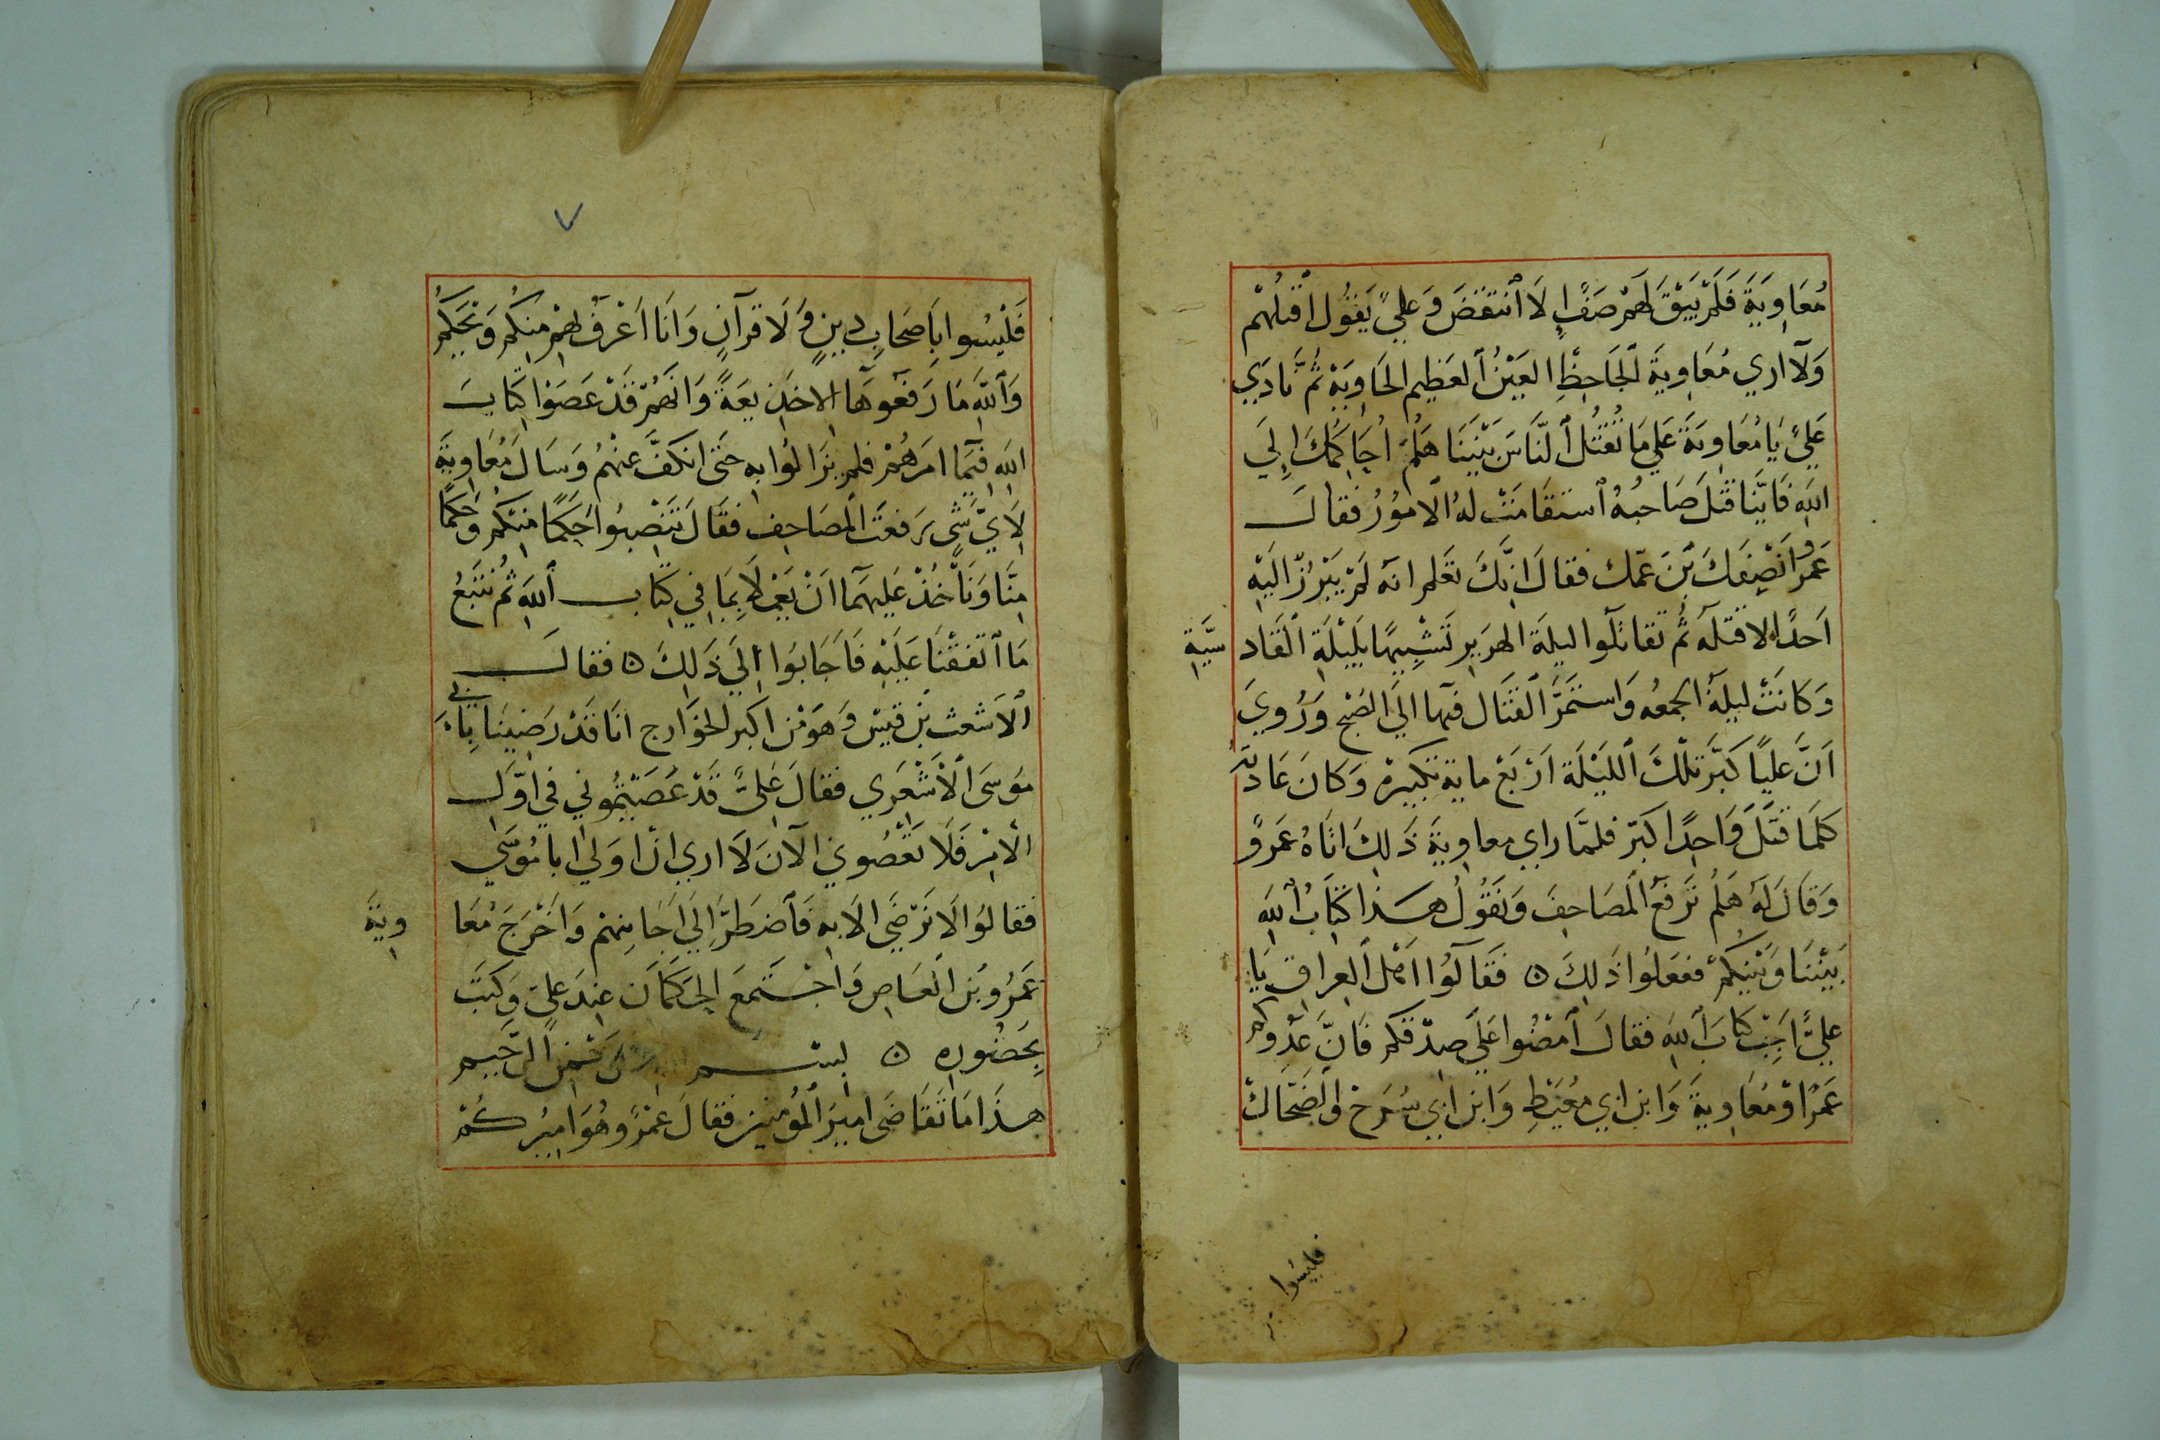 مُعَاوِيَةَ فَلَمْ يَبْقَ لَهُمْ صَفٌّ اِلَا اُنْتَقَضَ وَعَلِيٌّ يَقُولُ اَقْتُلُهْم
وَلَآ اري مُعَاوِيَةَ اَلجَاحِظَِ العَيْنُ اَلعَظِيم الحَاوِيَةْ ثُمَّ نَادَي
عَلِيٌّ يَا مُعَاوِيَةَ عَلي مَا تُقْتُل اَلنَّاسَ بَيْنَنَا هَلُمَّ اُحَاكِمُكَ اِلَي
اللهِ فَايُّنَا قتَلَ صَاحِبُهُ اَستقَامَتْ لهُ الاموُرُ فقالَ
عَمرو انْصِفَكَ بْنَ عَمّك فقالَ انِّكَ تعَلم انهُ لمَ يَبْرُزْ اليْهِ
اَحدًا الا قتلهُ ثُمَ تقاتلَوا ليلةَ الهرَيرِ تَشْبِيهًا بلَيْلَةِ اَلقَادسيَّةِ
وَكانَتْ ليلةَ الجمعُه وَاستمَرَّ اَلقتَال فيها الَي الصُبح وَرُويَ
اَنَّ عَليًا كبَّر تلْكَ اَلليْلَة اَرْبَعْ ماية تكبيرة وَكانَ عَادَتُه
كلمَا قتَلَ وَاحِدًا كبَّر فلمَّا راي معاويةَ ذَلِكَ اتَاهُ عَمروً
وَقالَ لهُ هَلُم نَرفعُ اَلمصَاحِفَ وَنقُولُ هــذا كِتَابُ اللهِ
بَيْننَا وَبَيْنِكمْ ففعَلوُا ذَلِكَ ۞ فقَالوُا اَهْل اَلعِراقِ يَا
عليّ اَجِبْ كتابَ اللهِ فقالَ اَمضُوا عَلَي صِدْقكم فَانَّ عَدُوكم
عَمرًا وْمُعَاويةَ وَابن ابي مُعْيَطِ وَابن ابي سُرَح وَالضحَّاكْ
فليسُوا
فَلَيْسُوا بِاَصحَابِ دِينٍ وَلَا قرآنٍ وَانَا اَعْرفُ بِهمْ مِنكُم وَيْحَكمُ
وَاَللهِ مَا رَفعَوهَا الا خَدِيعَةً وَانَّهُمْ قَدْ عَصَوْا كِتَابَ
اللهِ فيمَا امرَهُمْ فلم يزَالوُا به حَتّي انكفَّ عنهُمْ وَسَالَ مُعَاوِيةَ
لِاَيّ شَيٍ رَفعتَ اَلمصَاحِف فقَالَ تنَصِبُوا حَكمًا مِنكم وَحَكمًا
مِنَّا وَنَاْخُذْ عَليهمَا اَنْ يَعْمَلاَ بِمَا فِي كِتَابِ اَللهِ ثُم نتبَعُ
مَا اَتفَقْنَا عَليْهِ فَاجَابوُا اِلَي ذَلِكَ ۞ فقالَ
اَلاَشعث بْن قيسْ وَهوَ مْن اكبر الخوَارِج انَا قَدْ رَضِينا بِاَبي
موُسَي الاَشْعَرِي فقالَ عَليٌ قَدْ عَصَيْتمُوني في اوَّلِ
الاَمْر فَلَا تعْصُوني الآنَ لَا اري انْ اوَلي ابا مُوسَي
فقالوُا لَا نَرْضَي الا بهِ فَاَضطرَّ اِلَي اِجَابتهمْ وَاَخْرَجَ مُعَاوِيَة
عَمرُو بُن العَاصِ وَاجْتَمعَ الحكَمَان عِندَ عَليّ وَكتبَ
بحَضُورِهِ ۞ بســم الرَّحْمنِ الرَّحيم
هــذَا مَا تقَاضَي امِيرَ اَلمُؤمِنين فقالَ عَمْرٌو هُوَ اميرُكُمْ